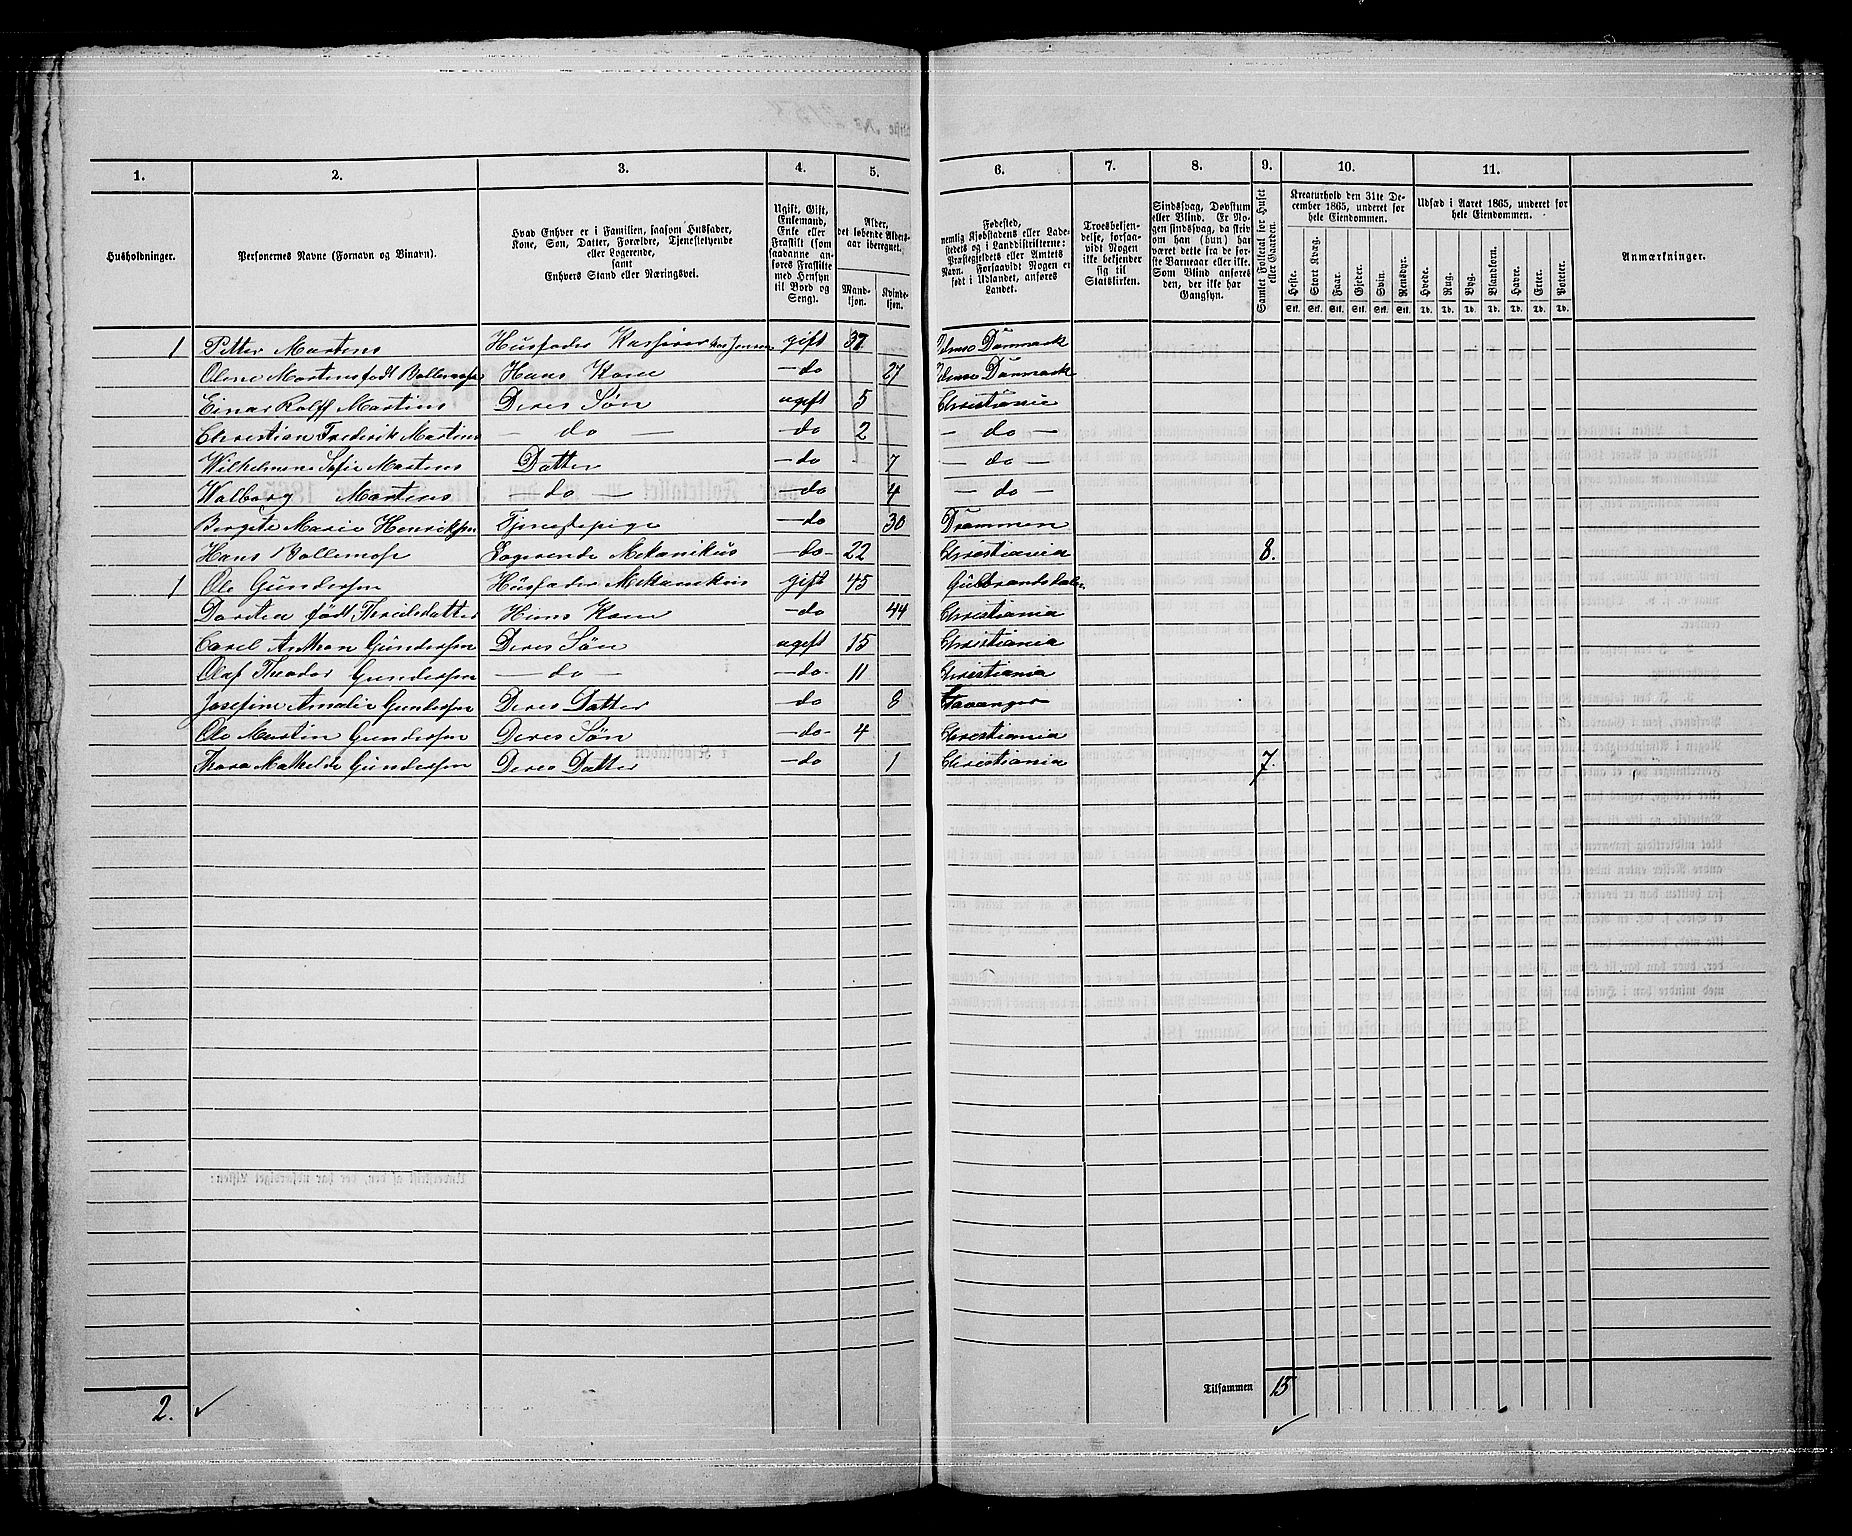 Liste No 215
1. 2. 3. 4. 5. 6. 7. 8. 9. 10. 11.
Husholdninger.
Personernes Navne (Fornavn og Binavn).
Hvad Enhver er i Familien, saasom Husfader, Kone, Søn, Datter, Forældre, Tjenestetyende eller Logerende, samt Enhvers Stand eller Næringsvei.
Ugift, Gift, Enkemand, Enke eller Fraskilt (som saadanne anføres Fraskilte med Hensyn til Bord og Seng).
Alder, det løbende Alders-aar iberegnet.
Mandkjøn. Kvindekjøn.
Fødested, nemlig Kjøbstadens eller Ladestedets og i Landdistrikterne: Præstegjeldets eller Amtets Navn. Forsaavidt Nogen er født i Udlandet, anføres Landet.
Troesbekjendelse, forsaavidt Nogen ikke bekjender sig til Statskirken.
Sindssvag, Døvstum eller Blind. Er Nogen sindssvag, da skriv om han (hun) har været dette fra de første Barneaar eller ikke. Som Blind anføres den, der ikke har Gangsyn.
Samlet Folketal for Huset eller Gaarden.
Kreaturhold den 31te December 1865, underet for hele Eiendommen.
Heste. Stort Kvæg. Faar. Gjeder. Svin. Rensdyr.
Stk. Stk. Stk. Stk. Stk. Stk.
Udsæd i Aaret 1865, underet for hele Eiendommen.
Hvede. Rug. Byg. Blandkorn. Havre. Erter. Poteter.
Td. Td. Td. Td. Td. Td. Td.
Anmærkninger.
1 Petter Martens Husfader Kasserer hos Jensen gift 37 Danmark
Oline Martens født Bollemose Hans Kone -do 27 Danmark
Einar Rolff Martens Deres Søn ugift 5 Christiania
Christian Frederik Martens - do - -do 2 - do -
Wilhelmine Sofie Martens Datter -do 7 - do -
Walborg Martens - do - -do 4 - do -
Bergete Marie Henriksen Tjenestepige -do 30 Drammen
Hans Bollemose Logerende Mekanikus -do- 22 Christiania 8.
1 Ole Gundersen Husfader Mekanikus gift 45 Gulbrandsdalen
Dortea født Thorilsdatter Hans Kone -do 44 Christiania
Carel Anthon Gundersen Deres Søn ugift 15 Christiania
Olaf Theodor Gundersen - do - -do- 11 Christiania
Josefine Amalie Gundersen Deres Datter -do 8 Stavanger
Ole Martin Gundersen Deres Søn -do- 4 Christiania
Thora Mathilde Gundersen Deres Datter -do 1 Christiania 7.
2. ✓ Tilsammen 15 ✓